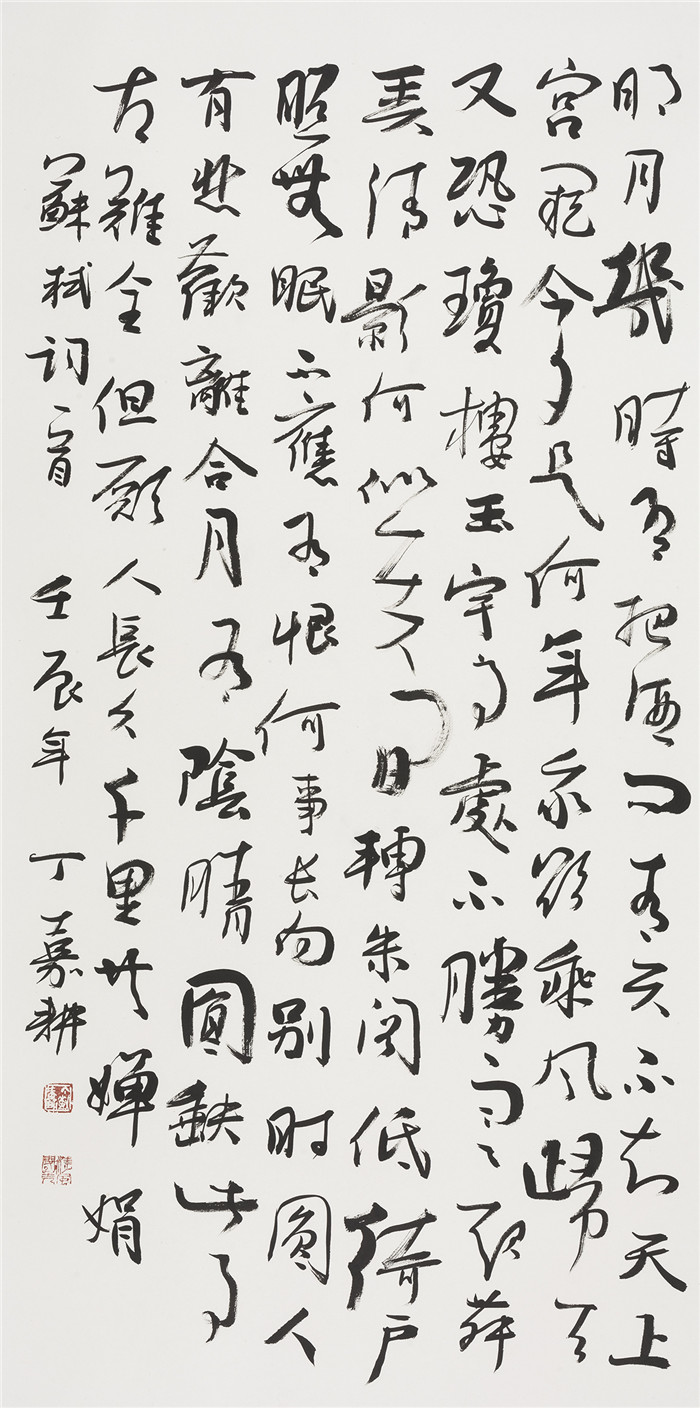 明月幾時有把酒问青天不知天上
宮闕今夕是何年我欲乘风歸去
又恐瓊樓玉宇高處不勝寒起舞
弄清影何似在人間轉朱阁低綺户
照無眠不應有恨何事长向别时圓人
有悲歡離合月有陰晴圓缺此事
古難全但願人長久千里共嬋娟
蘇軾词一首 壬辰年 丁嘉耕